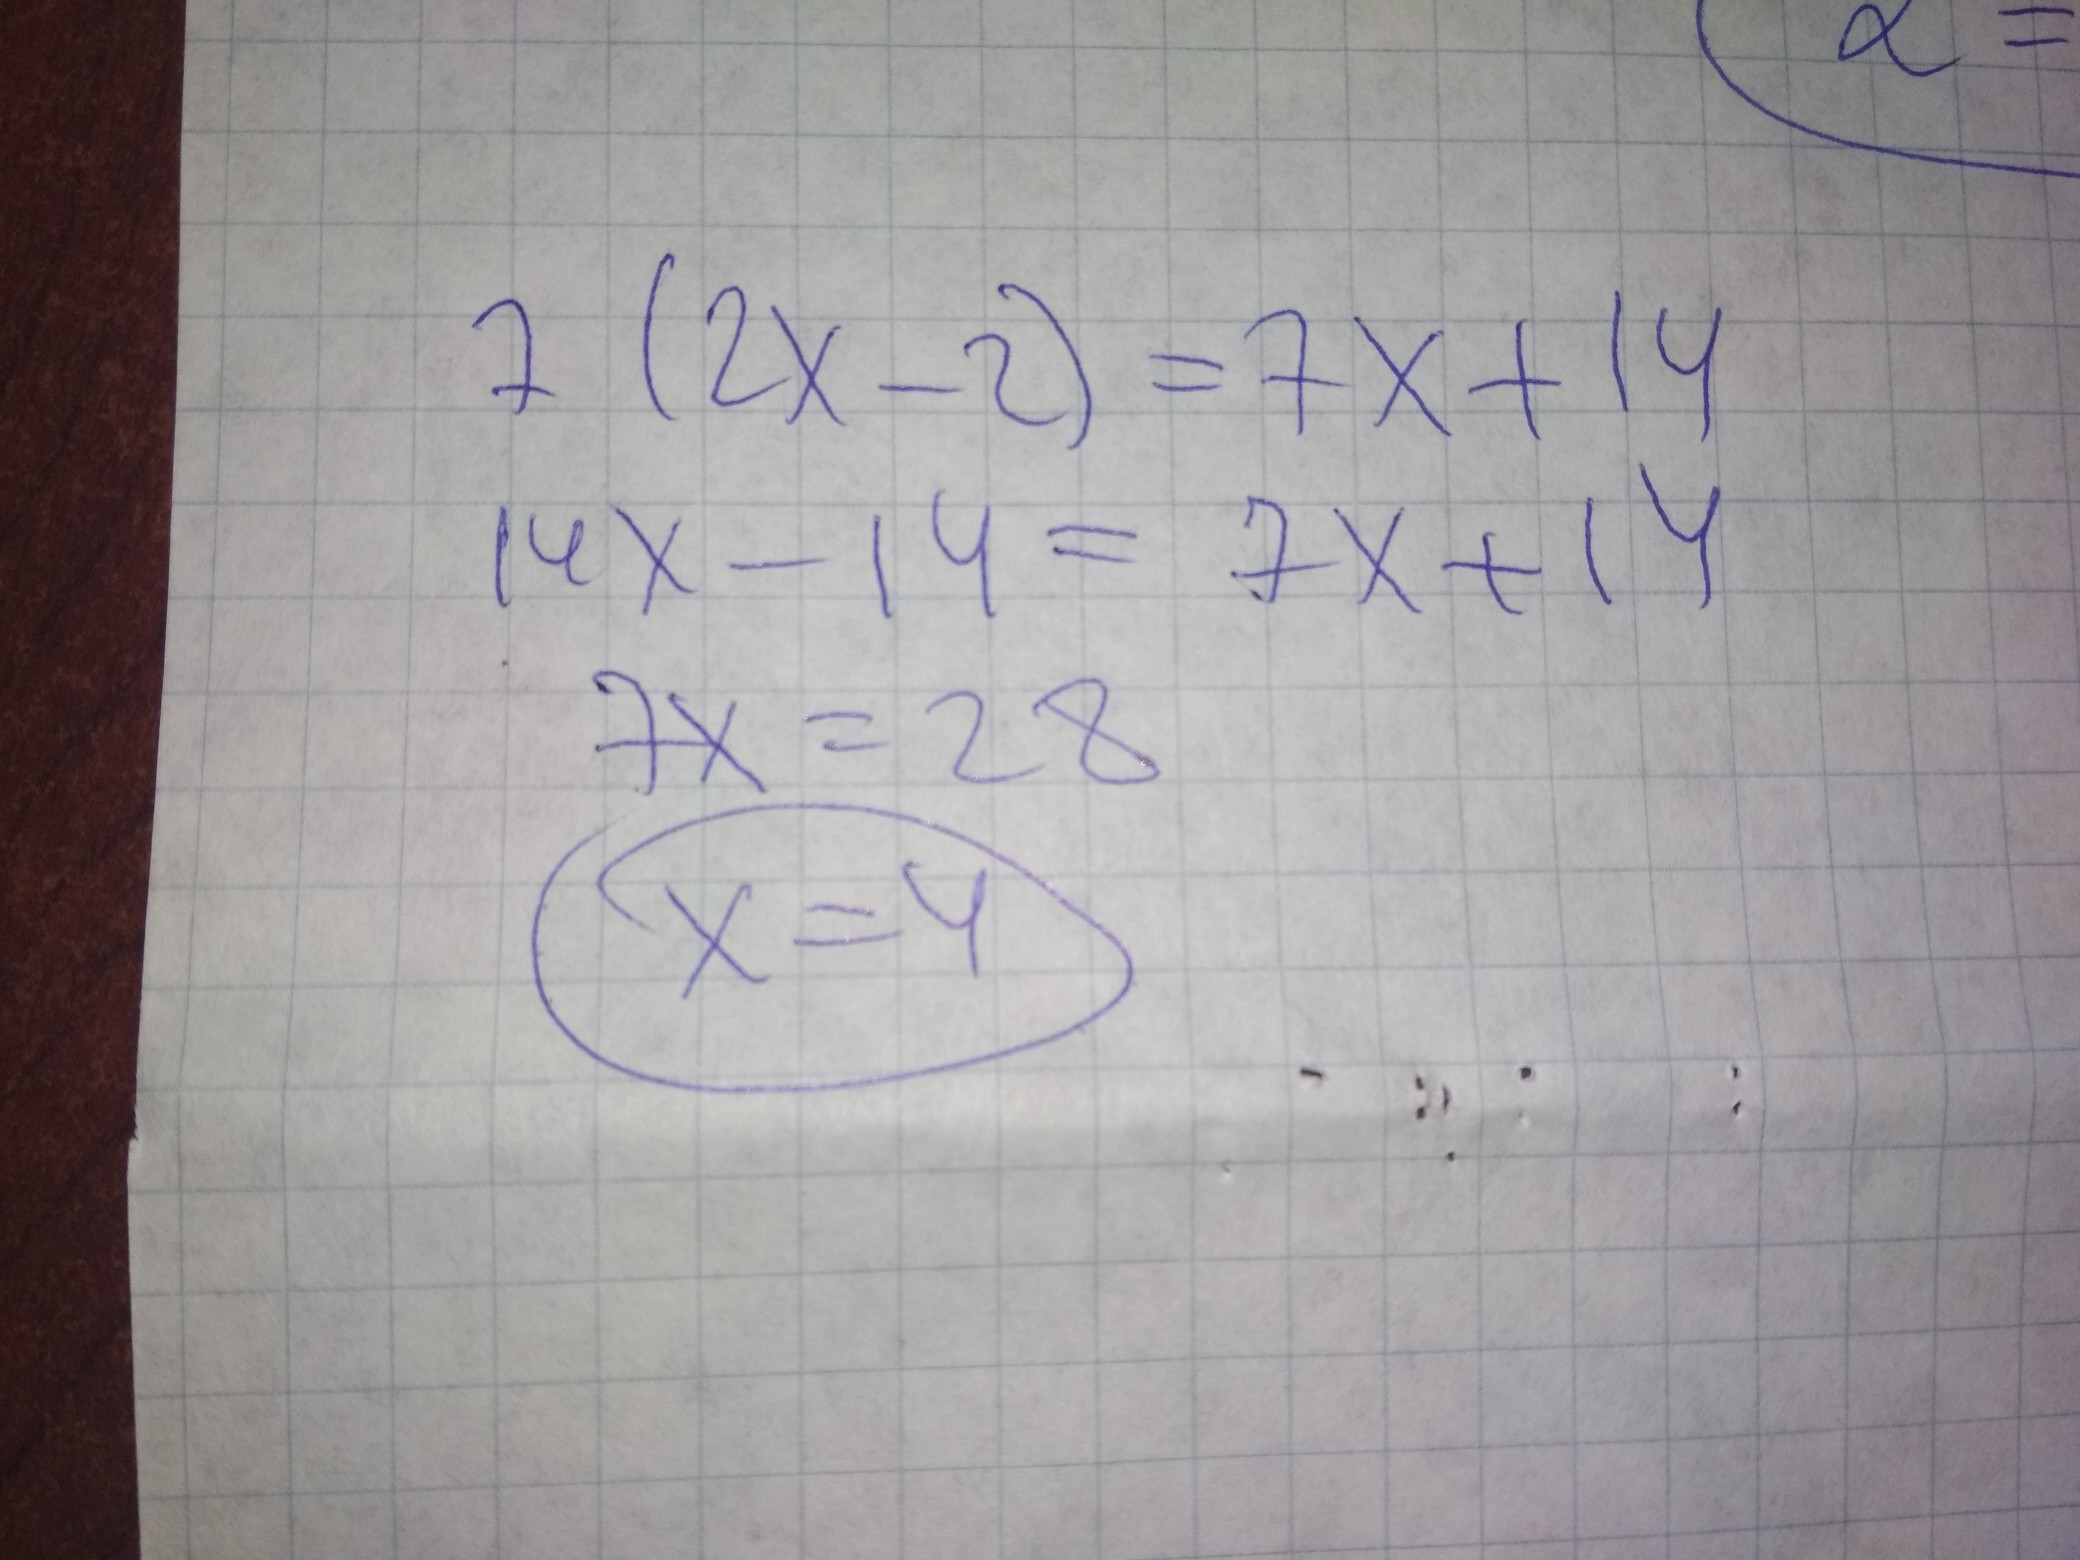 α =
7 (2x - 2) = 7x + 14
14x - 14 = 7x + 14
7x = 28
x = 4